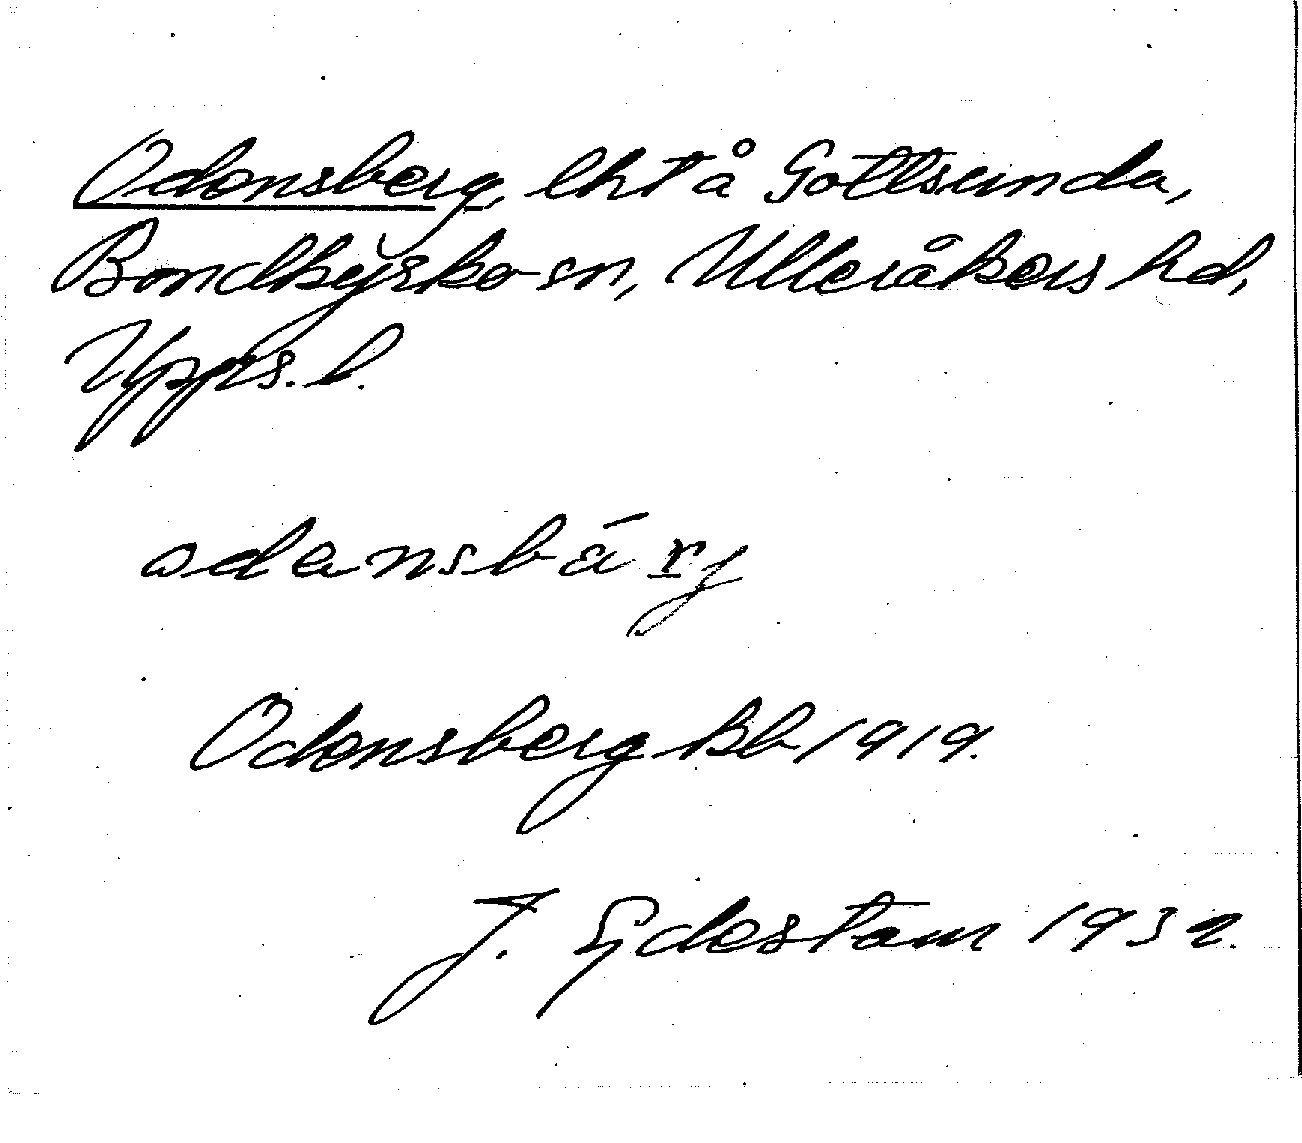 Odensberg, lht å Gottsunda,
Bondkyrko sn, Ulleråkers hd,
Upps. l.
odensbärj
Odensberg kb 1919.
J. Gdestam 1932.